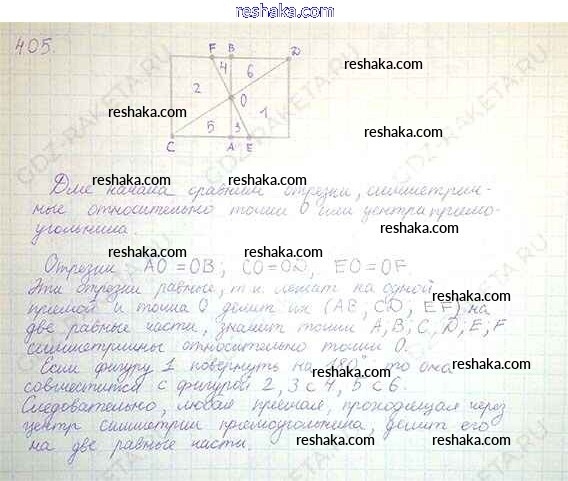 reshaka.com
405.
F B D
4 6
2 O 1
5 3
C A E
Для начала сравним отрезки, симметрич-
ные относительно точки О или центра прямо-
угольника.
Отрезки AO = OB; CO = OD, EO = OF
Эти отрезки равные, т.к. лежат на одной
прямой и точка О делит их (AB; CD; EF) на
две равные части, значит точки A; B; C; D; E; F
симметричны относительно точки О.
Если фигуру 1 повернуть на 180°, то она
совместится с фигурой 2, 3 с 4, 5 с 6.
Следовательно, любая прямая, проходящая через
центр симметрии прямоугольника, делит его
на две равные части.
reshaka.com
reshaka.com
reshaka.com
reshaka.com
reshaka.com
reshaka.com
reshaka.com
reshaka.com
reshaka.com
reshaka.com
reshaka.com
reshaka.com
reshaka.com
reshaka.com
GDZ-RAKETA.RU
GDZ-RAKETA.RU